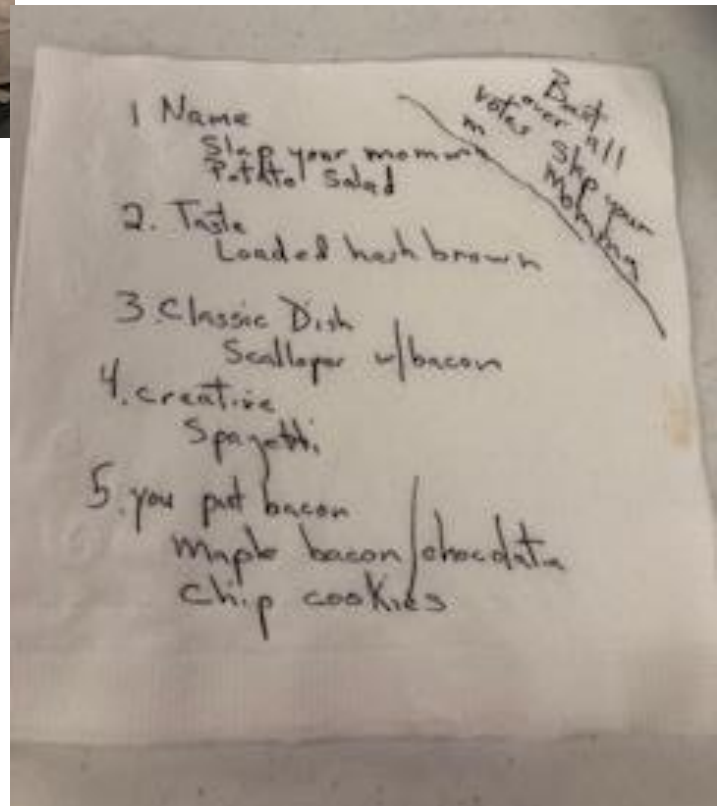 1 Name
Slap your momma
Potato Salad
2. Taste
Loaded hash brown
3. Classic Dish
Scallops w/bacon
4. creative
Spagetti
5. you put bacon
Maple bacon/chocolate
chip cookies
Best
over all
votes Slap your
momma